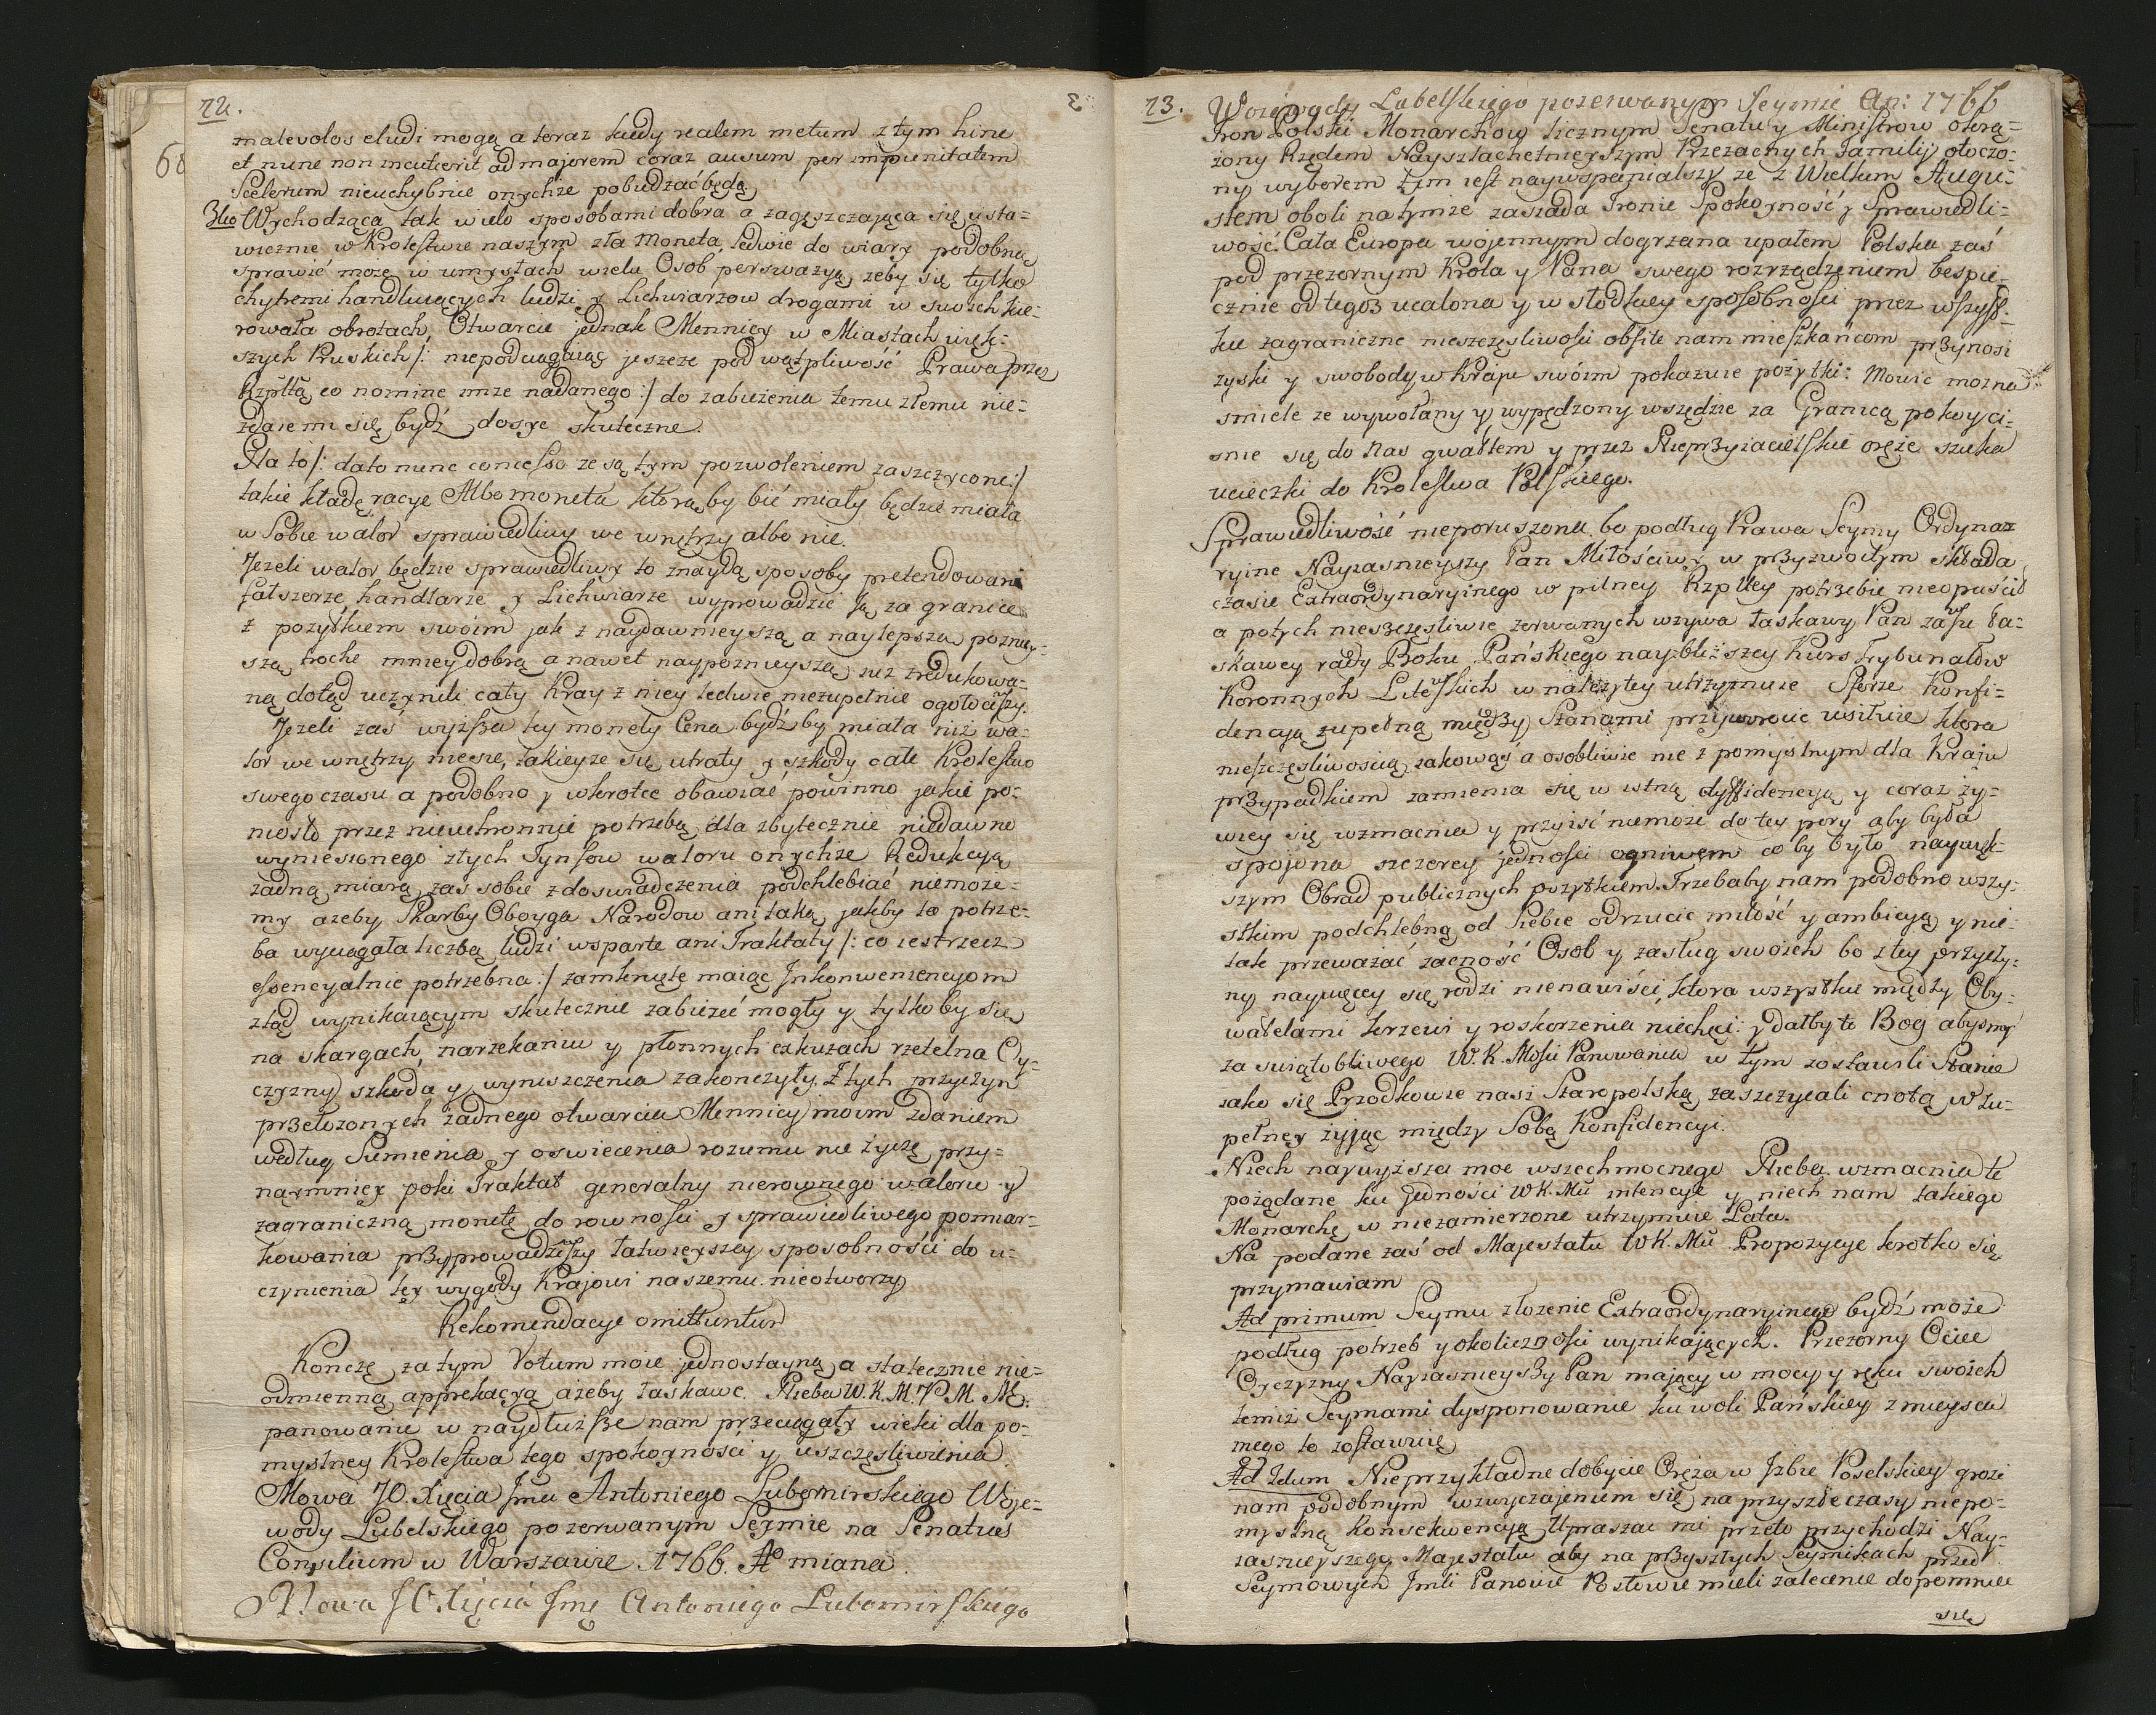 72.
malevolos eludi mogą a teraz kiedy realem metum z tym hinc
et nunc non incuterit ad majorem coraz ausum per impunitatem
Scelerum nieuchybnie onychże pobudzać będą.
3tio Wychodząca tak wielo sposobami dobra a zagęszczająca się usta=
wicznie w Krolestwie naszym zła Moneta, ledwie do wiary podobną
sprawić może w umysłach wielu Osob perswazyą, żeby się tylko
chytremi handluiących ludzi y Lichwiarzow drogami w swoich kie=
rowała obrotach, Otwarcie jednak Mennicy w Miastach więk=
szych Pruskich /: niepodciągaiąc jeszcze pod wątpliwość Prawa przez
Rzpltą eo nomine imże nadanego :/ do zabieżenia temu złemu nie=
zdaie mi się bydź dosyć skuteczne.
Na to /: dato nunc concesso że są tym pozwoleniem zaszczycone :/
takie kładę racye Albo moneta ktorą by bić miały będzie miała
w Sobie walor sprawiedliwy we wnętrzy albo nie.
Jeżeli walor będzie sprawiedliwy to znaydą sposoby pretendowani
fałszerze, handlarze y Lichwiarze wyprowadzić Ją za granice
z pożytkiem swoim jak z naydawnieyszą a naylepszą poźniey=
szą trochę mniey dobrą a nawet naypoznieyszą już zredukowa=
ną dotąd uczynili cały Kray z niey ledwie niezupełnie ogołociwszy.
Jeżeli zaś wyższa tey monety Cena bydź by miała niż wa=
lor we wnętrzy niesie, takieyże się utraty y szkody całe Krolestwo
swego czasu a podobno y wkrotce obawiać powinno jakie po=
niosło przez nieuchronnie potrzebą dla zbytecznie niedawno
wyniesionego złych Tynfow waloru onychże Redukcyą
żadną miarą zaś sobie z doswiadczenia podchlebiać niemoże=
my ażeby Skarby Oboyga Narodow ani taką jakby ta potrze=
ba wyciągała liczbą ludzi wsparte ani Traktaty /: co iest rzecz
essencyalnie potrzebna :/ zamknięte maiąc Jnkonweniencyom
ztąd wynikaiącym skutecznie zabieżeć mogły y tylko by się
na skargach, narzekaniu y płonnych exkuzach rzetelna Oy=
czyzny szkoda y wyniszczenia zakończyły. Z tych przyczyn
przełożonych żadnego otwarcia Mennicy moim zdaniem
według Sumienia y oswiecenia rozumu nie życzę przy=
naymniey poki Traktat generalny nierownego waloru y
zagraniczną monetę do rowności y sprawiedliwego pomiar=
kowania przyprowadziwszy łatwieyszey sposobności do u=
czynienia tey wygody Krajowi naszemu nieotworzy
Rekomendacye omittuntur
Konczę za tym Votum moie jednostayną a statecznie nie=
odmienną apprekacyą ażeby łaskawe Nieba W.K.M.P.M.M.
panowanie w naydłuższe nam przeciągały wieki dla po=
myslney Krolestwa tego spokoyności y uszczęsliwienia.
Mowa JO. Xięcia Jmci Antoniego Lubomirskiego Woje=
wody Lubelskiego pozerwanym Seymie na Senatus
Consilium w Warszawie. 1766. Ao miana.
Mowa JO Xięcia Jmę Antoniego Lubomirskiego
73.
Woiewody Lubelskiego pozerwanym Seymie An: 1766
Tron Polski Monarchow licznym Senatu y Ministrow okrą=
żony Rzędem Nayszlachetnieyszym Przezacnych Familij otoczo=
ny wyborem tym iest naywspanialszy że z Wielkim Augu=
stem oboli na tymże zasiada Tronie Spokoyność y Sprawiedli=
wość. Cała Europa wojennym dogrzana upałem Polska zaś
pod przezornym Krola y Pana swego rozrządzeniem bespie=
cznie od tegoż ucalona y w słodkiey sposobności przez wszyst=
kie zagraniczne nieszczęsliwości obfite nam mieszkańcom przynosi
zyski y swobody w Kraju swoim pokazuie pożytki: Mowić można
smiele że wywołany y wypędzony wszędzie za Granicą pokoy ci=
snie się do nas gwałtem y przez Nieprzyiacielskie oręże szuka
ucieczki do Krolestwa Polskiego.
Sprawiedliwość nieporuszona bo podług Prawa Seymy Ordynar
ryine Nayiasnieyszy Pan Miłościwy w przyzwoitym składa
czasie Extraordynaryinego w pilney Rzpltey potrzebie nieopuścił
a po tych nieszczęsliwie zerwanych wzywa łaskawy Pan zawsze ła=
skawey rady Boku Pańskiego nayblizszey Kurs Trybunałow
Koronnych Litewskich w należytey utrzymuie Sferze Konfi=
dencyą zupełną między Stanami przywrocić usiłuie ktora
nieszczęsliwością jakowąś a osobliwie nie z pomyslnym dla Kraju
przypadkiem zamienia się w istną dyffidencyą y coraz ży=
wiey się wzmacnia y przyiść niemoże do tey pory aby była
spojona szczerey jedności ogniwem co by było naywięk=
szym Obrad publicznych pożytkiem. Trzebaby nam podobno wszy=
stkim podchlebną od Siebie odrzucić miłość y ambicyą y nie=
tak przeważać zacność Osob y zasług swoich bo z tey przyczy=
ny naywięcey się rodzi nienawiści, ktora wszystkie między Oby=
watelami krzewi y roskorzenia niechęci: y dałby to Bog abysmy
za swiątobliwego W.K. Mości Panowania w tym zostawili Stanie
iako się Przodkowie nasi Staropolską zaszczycali cnotą w Zu=
pełney żyjąc między Sobą Konfidencyi.
Niech naywyższa moc wszechmocnego Nieba wzmacnia te
pożądane ku Jedności WK. Mci intencye y niech nam takiego
Monarchę w niezamierzone utrzymuie Lata.
Na podane zaś od Majestatu WK. Mci Propozycye krotko się
przymawiam
Ad primum Seymu złożenie Extraordynaryinego bydź może
podług potrzeb y okoliczności wynikających. Przezorny Ociec
Oyczyzny Nayiasnieyszy Pan mający w mocy y ręku swoich
temiż Seymami dysponowanie ku woli Pańskiey z mieysca
mego to zostawuię
Ad 2dum Nieprzykładne dobycie Oręża w Jzbie Poselskiey grozi
nam podobnym wzwyczajeniem się na przyszłe czasy niepo=
myslną Konsekwencyą Upraszać mi przeto przychodzi Nay=
iasnieyszego Majestatu aby na przyszłych Seymikach przed
Seymowych Jmći Panowie Posłowie mieli zalecenie dopomnieć
się